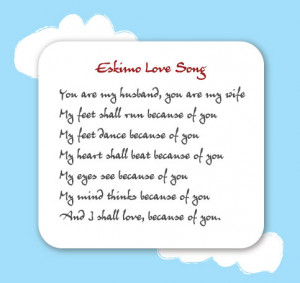 Eskimo Love Song
You are my husband, you are my wife
My feet shall run because of you
My feet dance because of you
My heart shall beat because of you
My eyes see because of you
My mind thinks because of you
And I shall love, because of you.